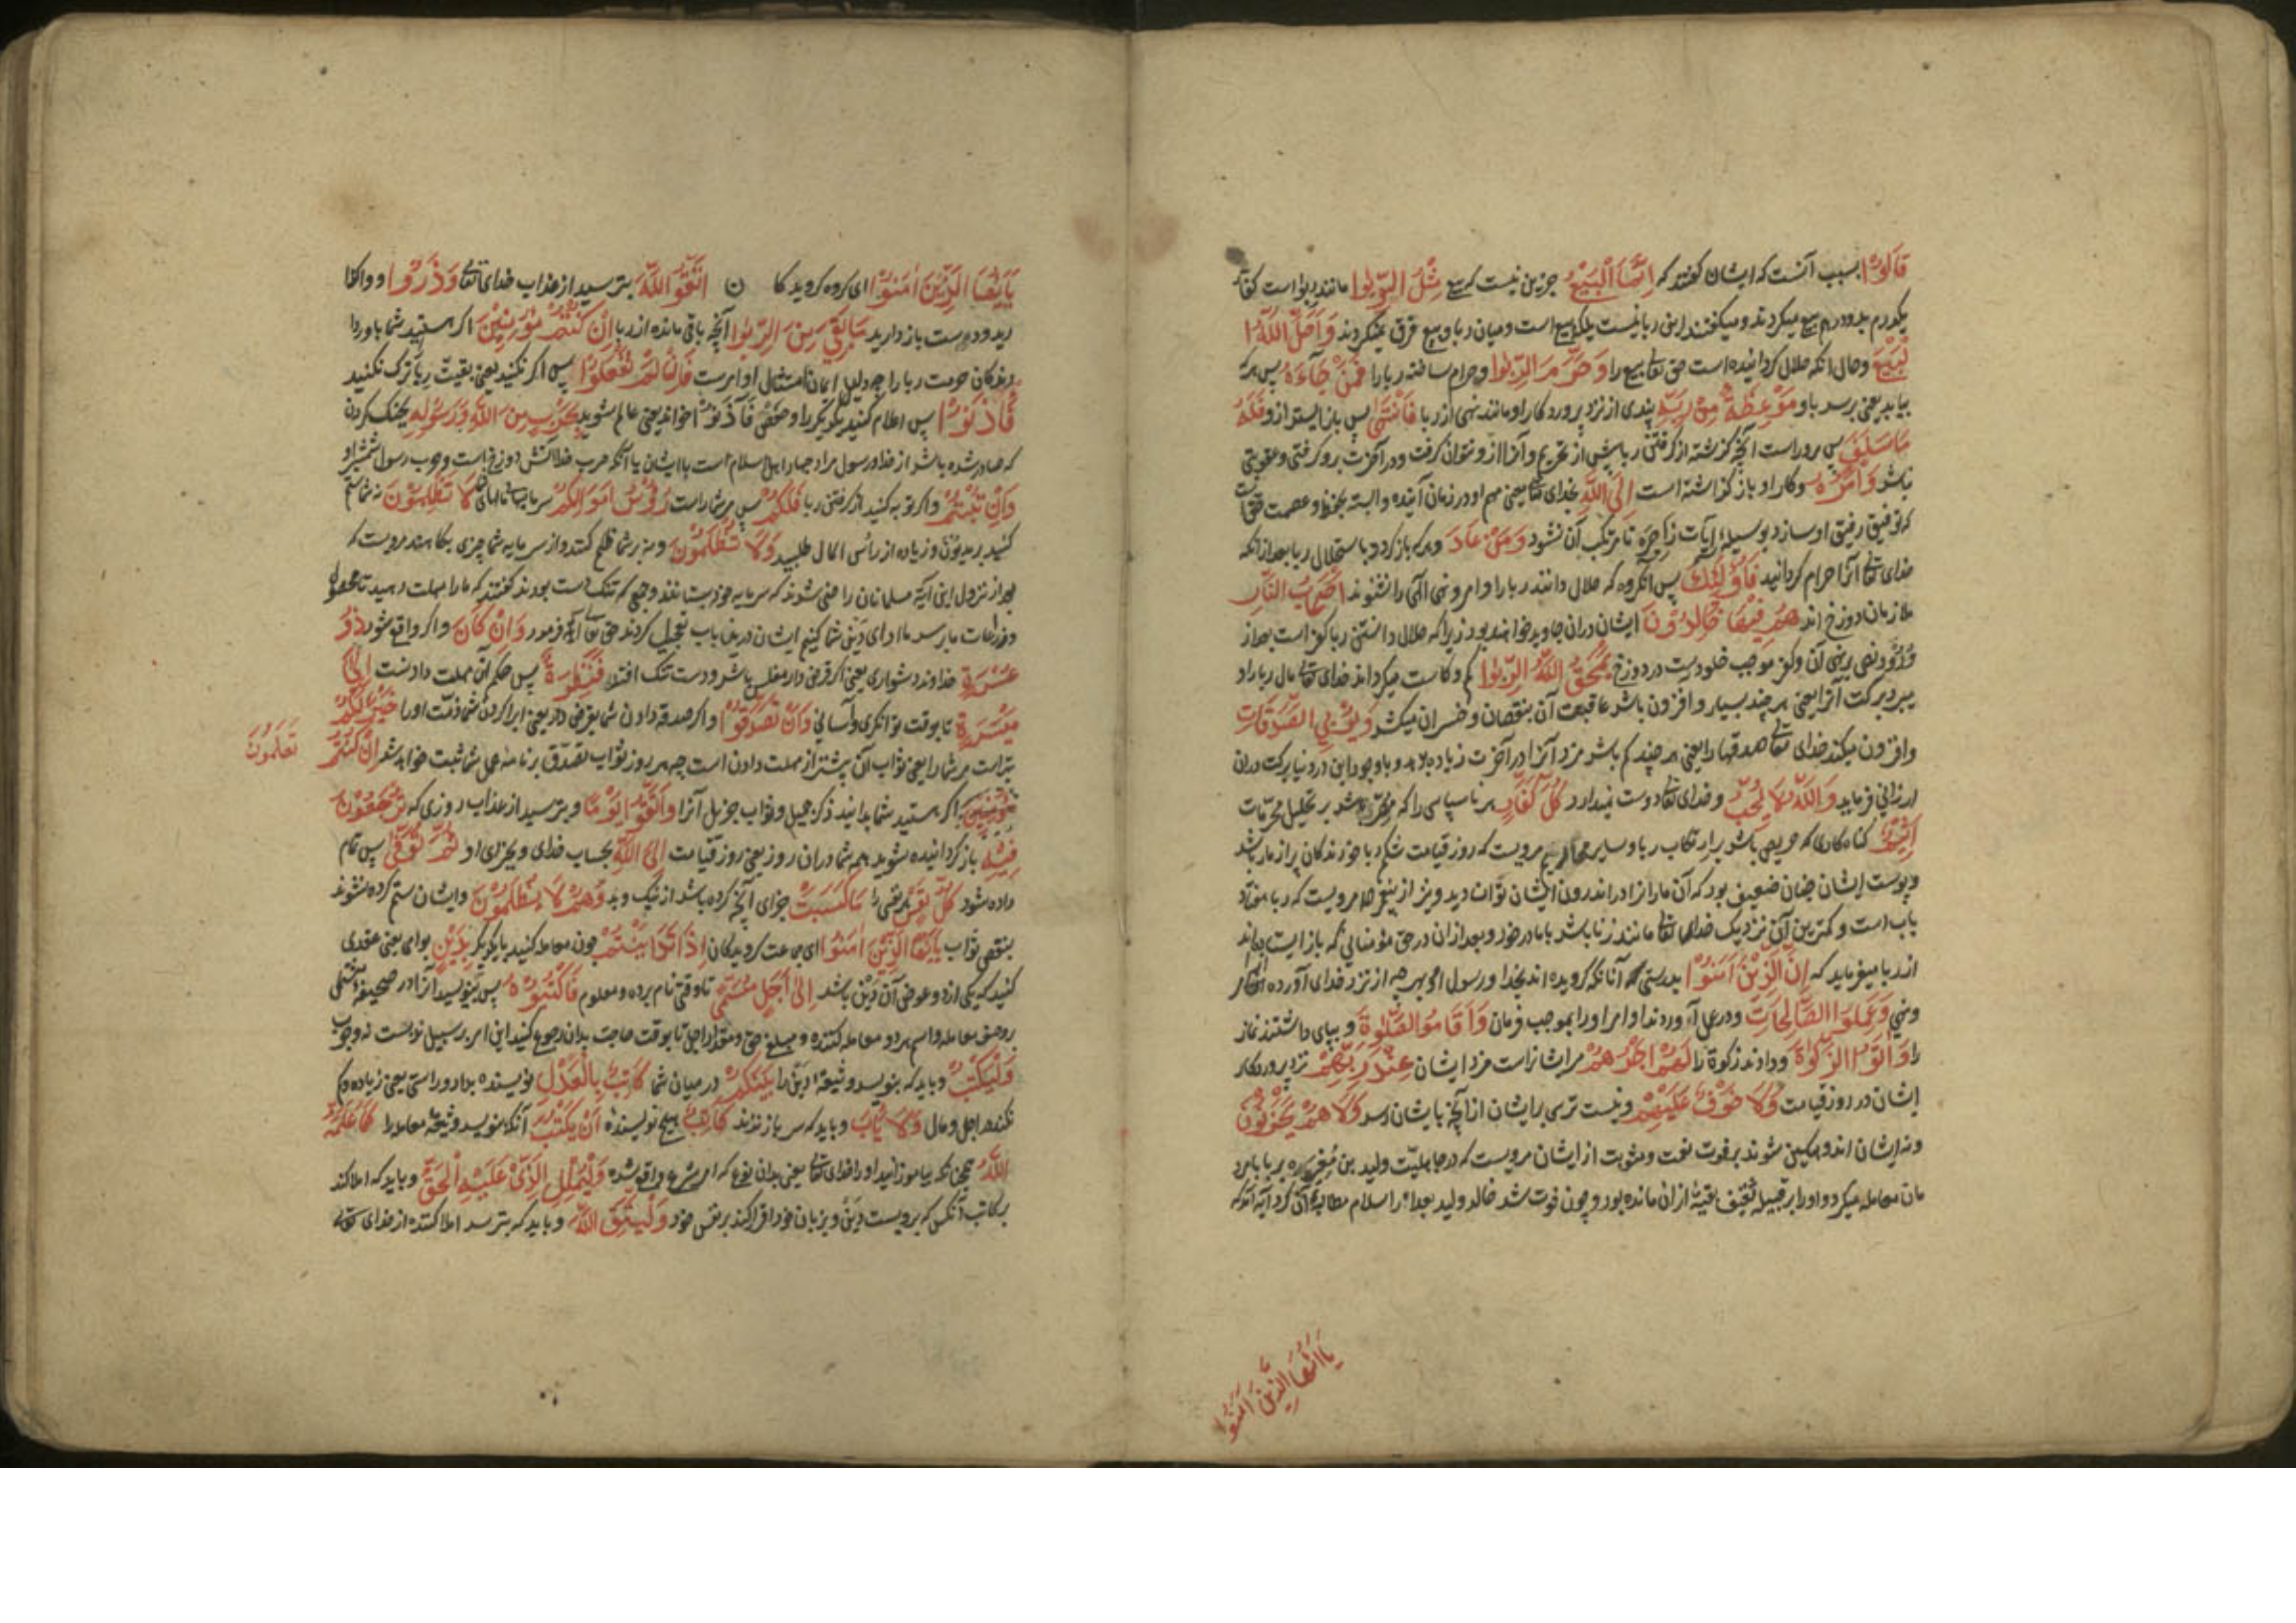 قَالُوْا بسبب آنست که ایشان گفتند که اِنَّمَا الْبَیْعُ جز این نیست که بیع مِثْلُ الرِّبٰوا مانند ربوا است
یکدرم بدو درم بیع میکردند و میگفتند این ربا نیست بلکه بیع است و میان ربا و بیع فرق نمیکردند وَاَحَلَّ اللّٰهُ ا
لْبَیْعَ و حال آنکه حلال گردانیده است حق تعالی بیع را وَحَرَّمَ الرِّبٰوا و حرام ساخته ربا را فَمَنْ جَآءَهٗ پس هرکه
بیاید یعنی برسد باو مَوْعِظَةٌ مِنْ رَبِّهٖ پندی از نزد پروردگار او مانند نهی از ربا فَانْتَهٰی پس باز ایستد ازو فَلَهٗ
مَا سَلَفَ پس مرو راست آنچه گذشته از گرفتن ربا پیش از تحریم و آنرا ازو نتوان گرفت و در آخرت برو گرفتی و عقوبتی
باشد وَاَمْرُهٗ و کار او باز گذاشته است اِلَی اللّٰهِ بخدای تعالی یعنی مهم او در زمان آینده و البته بحفظ و عصمت
که توفیق رفیق او سازد بوسیله آیات زاجره تا مرتکب آن نشود وَمَنْ عَادَ و هرکه باز گردد باستحلال ربا بعد از آنکه
خدای تعالی آنرا حرام گردانید فَاُولٰٓئِكَ پس آنگروه که حلال دانند ربا را و امر و نهی الهی را نشنوند اَصْحٰبُ النَّارِ
ملازمان دوزخ اند هُمْ فِیْهَا خَالِدُوْنَ ایشان دران جاوید خواهند بود زیراکه حلال دانستن ربا کفر است بعد از
ورود نهی برین آن و کفر موجب خلودست در دوزخ یَمْحَقُ اللّٰهُ الرِّبٰوا کم و کاست میگرداند خدای تعالی مال ربا را و
ببرد برکت آنرا یعنی هرچند بسیار و افزون باشد عاقبت آن بنقصان و خسران میکشد وَیُرْبِی الصَّدَقَاتِ
و افزون میکند خدای تعالی صدقها را یعنی هرچند کم باشد مزد آنرا در آخرت زیاده دهد و باوجود این در دنیا برکت دران
ارزانی فرماید وَاللّٰهُ لَا یُحِبُّ و خدای تعالی دوست نمیدارد كُلَّ كَفَّارٍ هر ناسپاسی را که مصرّ باشد بر تحلیل محرّمات
اَثِیْمٍ گناهکاری که حریص باشد بر ارتکاب ربا و سایر محارم مرویست که روز قیامت شکم ربا خورندگان پر از مار باشد
و پوست ایشان چنان ضعیف بود که آن ماران را در اندرون ایشان توان دید و نیز از پیغمبر مرویست که ربا هفتاد
باب است و کمترین آن نزدیک خدای تعالی مانند زنا باشد با مادر خود و بعد ازان در حق مؤمنانی که باز ایستاده اند
از ربا میفرماید که اِنَّ الَّذِیْنَ اٰمَنُوْا بدرستی که آنانکه گرویده اند بخدا و رسول او بهرچه از نزد خدای آورده
وَعَمِلُوا الصَّالِحَاتِ و در عمل آوردند اوامر او را بموجب فرمان وَاَقَامُوا الصَّلٰوةَ و بپای داشتند نماز
را وَاٰتَوُا الزَّكٰوةَ و دادند زکوة را لَهُمْ اَجْرُهُمْ مر ایشانراست مزد ایشان عِنْدَ رَبِّهِمْ نزد پروردگار
ایشان در روز قیامت وَلَا خَوْفٌ عَلَیْهِمْ و نیست ترسی بر ایشان از آنچه بایشان رسد وَلَا هُمْ یَحْزَنُوْنَ
و نه ایشان اندوهگین شوند بر فوت نعمت و مثوبت از ایشان مرویست که در جاهلیت ولید بن مغیره بربا با مرد
مان معامله میکرد و او را بر قبیله ثقیف بقیهٔ ازان مانده بود و چون فوت شد خالد ولید بعد از اسلام مطالبهٔ آن کرد آیه آمد که
یَا اَیُّهَا الَّذِیْنَ اٰمَنُوْا
یَا اَیُّهَا الَّذِیْنَ اٰمَنُوْا ای گروه گرویدگا ن اتَّقُوا اللّٰهَ بترسید از عذاب خدای تعالی وَذَرُوْا و واگذا
رید و دست باز دارید مَا بَقِیَ مِنَ الرِّبٰوا آنچه باقی مانده از ربا اِنْ كُنْتُمْ مُؤْمِنِیْنَ اگر هستید شما باوردا
رندگان حرمت ربا را چه دلیل ایمان امتثال اوامرست فَاِنْ لَمْ تَفْعَلُوْا پس اگر نکنید یعنی بقیت ربا ترک نکنید
فَأْذَنُوْا پس اعلام کنید یکدیگر را و حفص فَأْذَنُوْا خواند یعنی عالم شوید بِحَرْبٍ مِنَ اللّٰهِ وَرَسُوْلِهٖ بجنگ کردن
که صادر شده باشد از خدا و رسول مراد جهاد اهل اسلام است با ایشان یا آنکه حرب خدا آتش دوزخ است و حرب رسول شمشیر او
وَاِنْ تُبْتُمْ و اگر توبه کنید از گرفتن ربا فَلَكُمْ پس مر شما راست رُؤُسُ اَمْوَالِكُمْ سرمایهای مالهای لَا تَظْلِمُوْنَ نه شما ستم
کنید بر مدیون و زیاده از رأس المال طلبید وَلَا تُظْلَمُوْنَ و نه بر شما ظلم کنند و از سرمایه شما چیزی بکاهند مرویست که
بعد از نزول این آیه مسلمانان راضی شدند که سرمایه خود بستانند و جمعی که تنگدست بودند گفتند که ما را مهلت دهید تا محصول
و زراعات ما برسد ما ادای دین شما کنیم ایشان درین باب تعجیل کردند حق تعالی آیه فرمود وَاِنْ كَانَ و اگر واقع شود ذُوْ
عُسْرَةٍ خداوند دشواری یعنی اگر قرض دار مفلس باشد و دست تنگ افتد فَنَظِرَةٌ پس حکم آن مهلت دادنست اِلٰی
مَیْسَرَةٍ تا بوقت توانگری و آسانی وَاَنْ تَصَدَّقُوْا و اگر صدقه دادن شما بقرض دار یعنی ابرا کردن شما ذمت او را خَیْرٌ لَكُمْ
بهتراست مر شما را یعنی ثواب آن بیشتر از مهلت دادن است چه هر روز ثواب تصدّق بر نامهٔ عمل شما ثبت خواهد شد اِنْ كُنْتُمْ
تَعْلَمُوْنَ
اگر هستید شما بدانید ذکر جمیل و ثواب جزیل آنرا وَاتَّقُوْا یَوْمًا و بترسید از عذاب روزی که تُرْجَعُوْنَ
فِیْهِ باز گردانیده شوید همه شما دران روز یعنی روز قیامت اِلَی اللّٰهِ بحساب خدای و بجزای او ثُمَّ تُوَفّٰی پس تمام
داده شود كُلُّ نَفْسٍ هر نفسی را مَا كَسَبَتْ جزای آنچه کرده باشد از نیک و بد وَهُمْ لَا یُظْلَمُوْنَ و ایشان ستم کرده نشوند
بنقص ثواب یَا اَیُّهَا الَّذِیْنَ اٰمَنُوْا ای جماعت گرویدگان اِذَا تَدَایَنْتُمْ چون معامله کنید با یکدیگر بِدَیْنٍ بوامی یعنی عقدی
کنید که یکی ازدو عوض آن دین باشد اِلٰی اَجَلٍ مُسَمًّی تا وقتی نام برده و معلوم فَاكْتُبُوْهُ پس بنویسید آنرا در صحیفه مشتمل
بر وصف معامله و اسم هر دو معامله کننده و مبلغ حق و مقدار اجل تا بوقت حاجت بدان رجوع کنید این امر بر سبیل ندبست نه وجوب
وَلْیَكْتُبْ و باید که بنویسد وثیقهٔ دین را بَیْنَكُمْ در میان شما كَاتِبٌ بِالْعَدْلِ نویسنده بداد و راستی یعنی زیاده و کم
نکند در اجل و مال وَلَا یَأْبَ و باید که سر باز نزند كَاتِبٌ هیچ نویسنده اَنْ یَكْتُبَ آنکه بنویسد وثیقهٔ معامله را كَمَا عَلَّمَهُ
اللّٰهُ همچنانکه بیاموزانید او را خدای تعالی یعنی بدان نوع که امر شرع واقع شده وَلْیُمْلِلِ الَّذِیْ عَلَیْهِ الْحَقُّ و باید که املا کند
بر کاتب آنکس که برویست دین و بزبان خود اقرار کند بر نفس خود وَلْیَتَّقِ اللّٰهَ و باید که بترسد املا کننده از خدای که